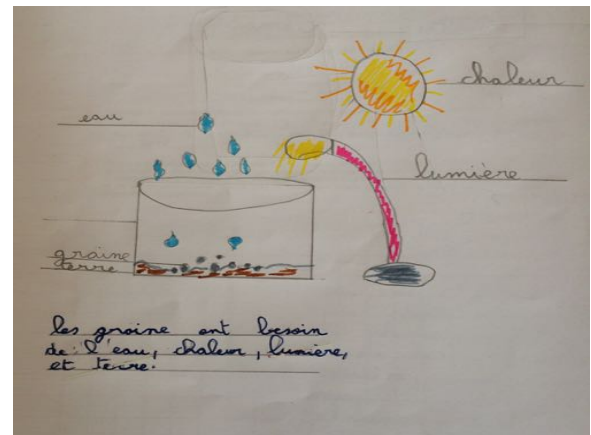 chaleur
eau
lumière
graine
terre
les graine ont besoin
de: l'eau, chaleur, lumière,
et terre.